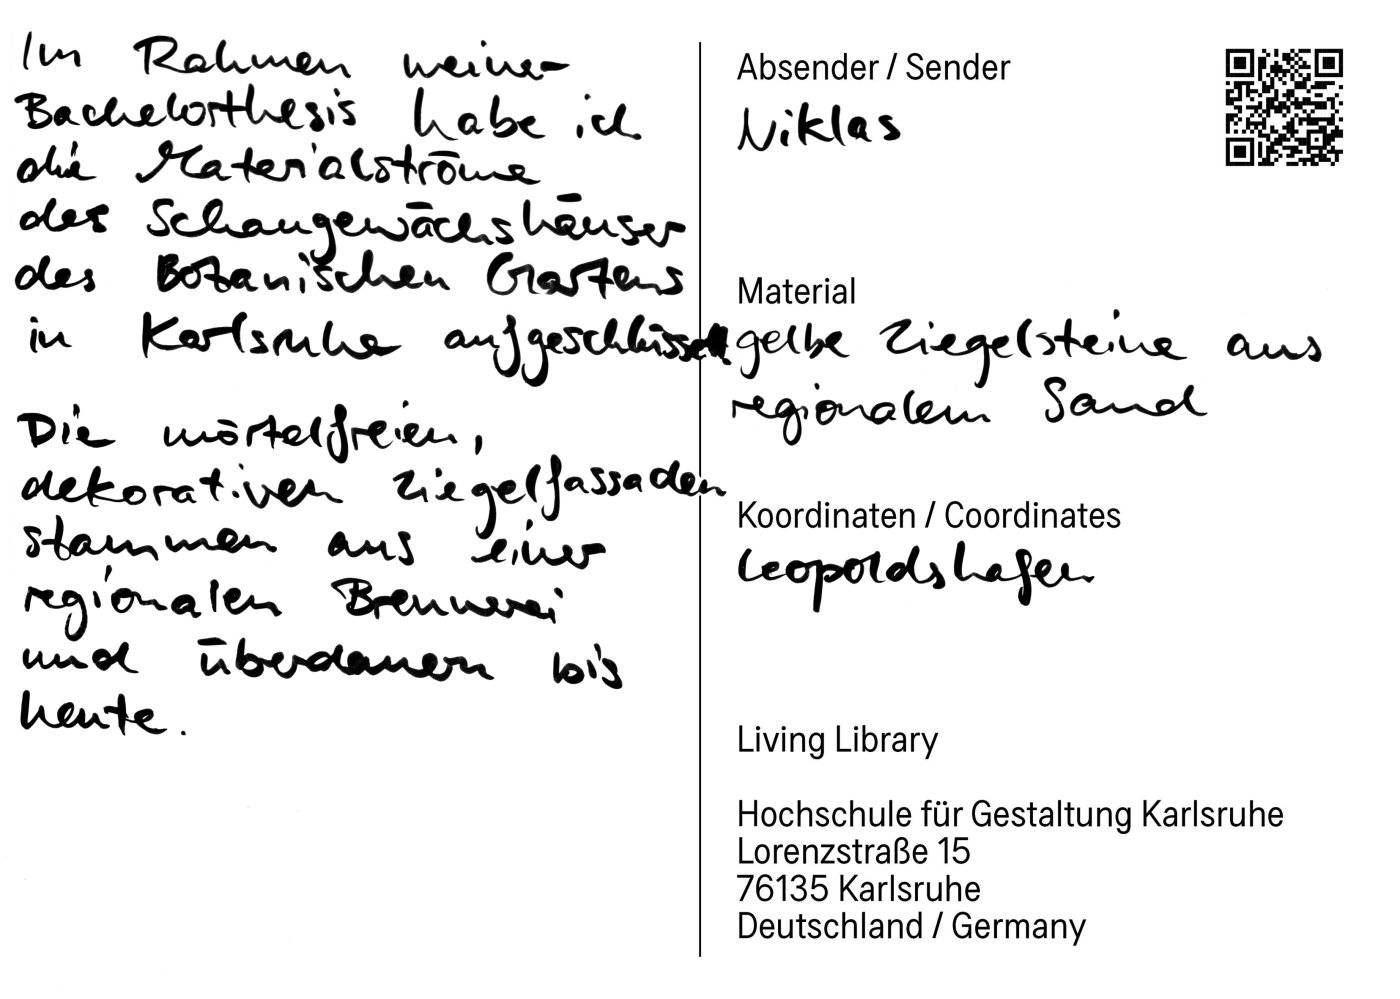 Im Rahmen meiner
Bachelorthesis habe ich
die Materialströme
der Schaugewächshäuser
des Botanischen Gartens
in Karlsruhe aufgeschlüsselt.
Die mörtelfreien,
dekorativen Ziegelfassaden
stammen aus einer
regionalen Brennerei
und überdauern bis
heute.
Absender / Sender
Niklas
Material
gelbe Ziegelsteine aus
regionalem Sand
Koordinaten / Coordinates
Leopoldshafen
Living Library
Hochschule für Gestaltung Karlsruhe
Lorenzstraße 15
76135 Karlsruhe
Deutschland / Germany